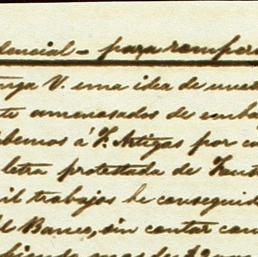 dencial - para rempor
tenga V. una idea de nuest
te amenasados de emba
bemos á F. Artigas por co
letra protestada de Faust
mil trabajos he conseguid
el Banco, sin contar con